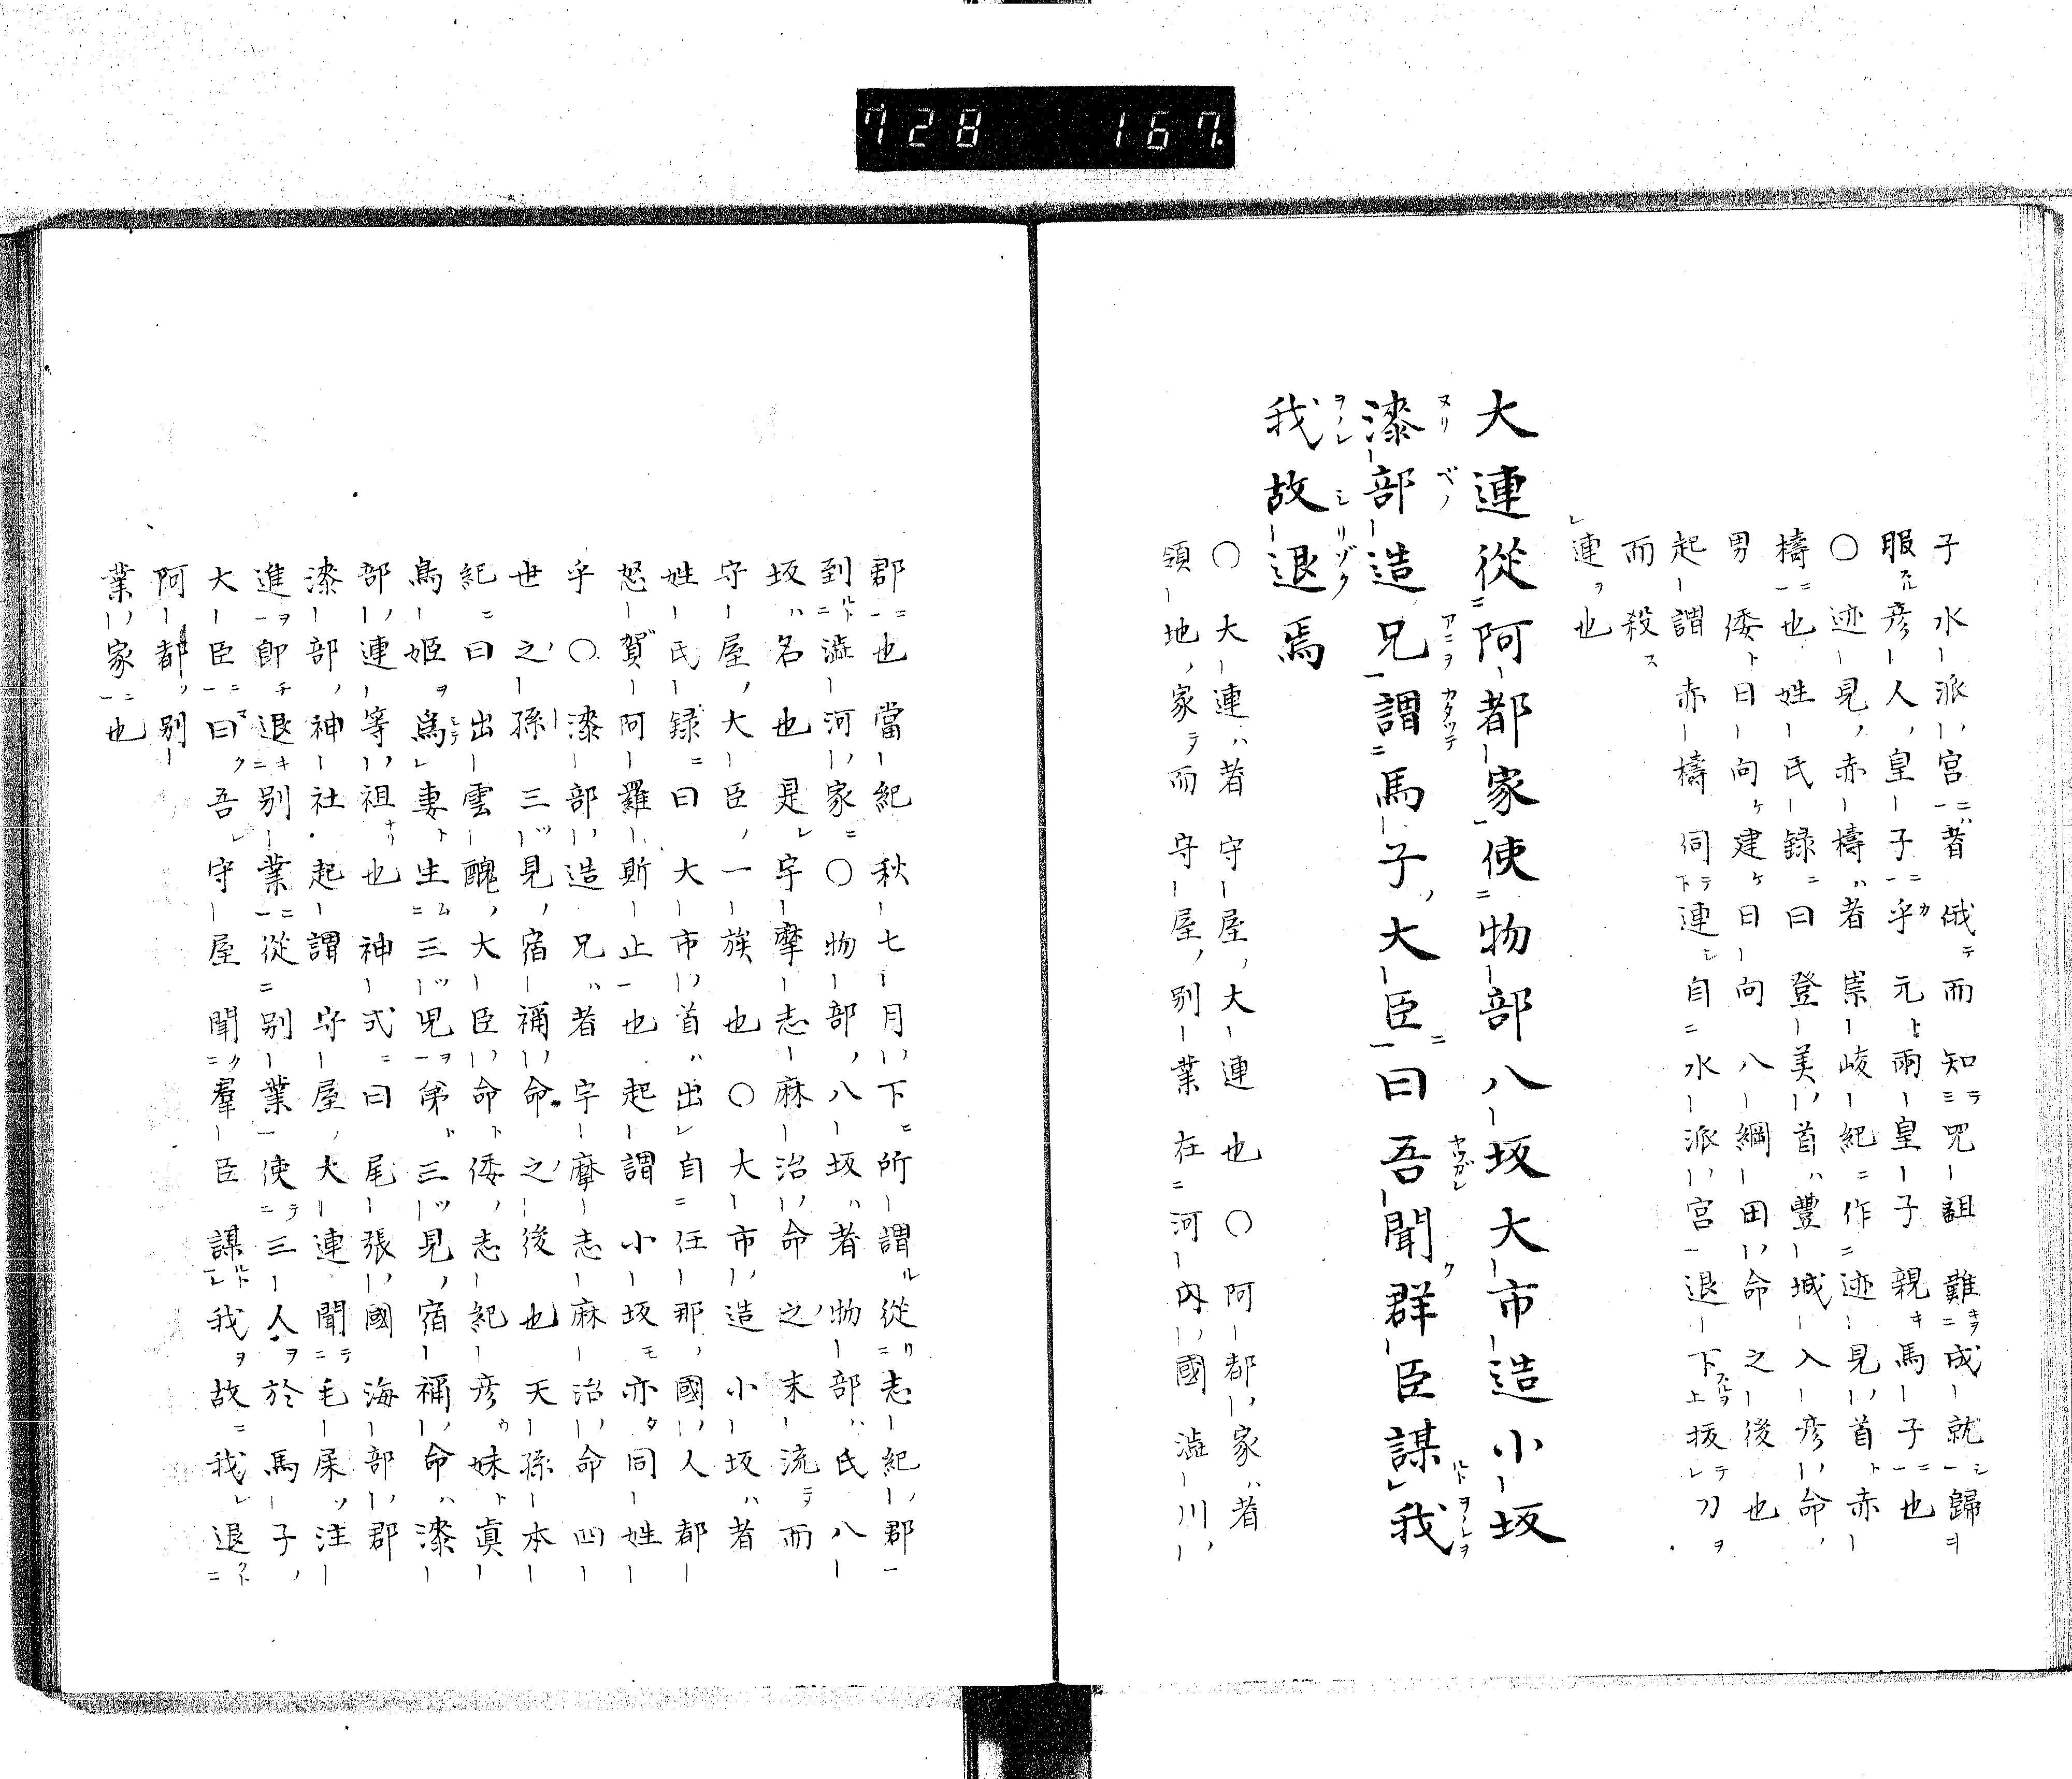 728 167.
子水派宮者俄而知咒詛難成就歸
服彦人皇子乎元兩皇子親馬子也
○迹見赤檮者崇峻紀作迹見首赤
檮也姓氏録曰登美首豐城入彦命
男倭日向建日向八綱田命之後也
起謂赤檮伺連自水派宮退下抜刀
而殺
連也
大連從阿都家使物部八坂大市造小坂
漆部造兄謂馬子大臣曰吾聞群臣謀我
我故退焉
○大連者守屋大連也○阿都家者
領地家而守屋別業在河内國澁川
郡也當紀秋七月下所謂從志紀郡
到澁河家○物部八坂者物部氏八
坂名也是宇摩志麻治命之末流而
守屋大臣一族也○大市造小坂者
姓氏録曰大市首出自任那國人都
怒賀阿羅斯止也起謂小坂亦同姓
乎○漆部造兄者宇摩志麻治命四
世之孫三見宿禰命之後也天孫本
紀曰出雲醜大臣命倭志紀彦妹真
鳥姫爲妻生三兒弟三見宿禰命漆
部連等祖也神式曰尾張國海部郡
漆部神社起謂守屋大連聞毛屎注
進即退別業從別業使三人於馬子
大臣曰吾守屋聞羣臣謀我故我退
阿都別
業家也